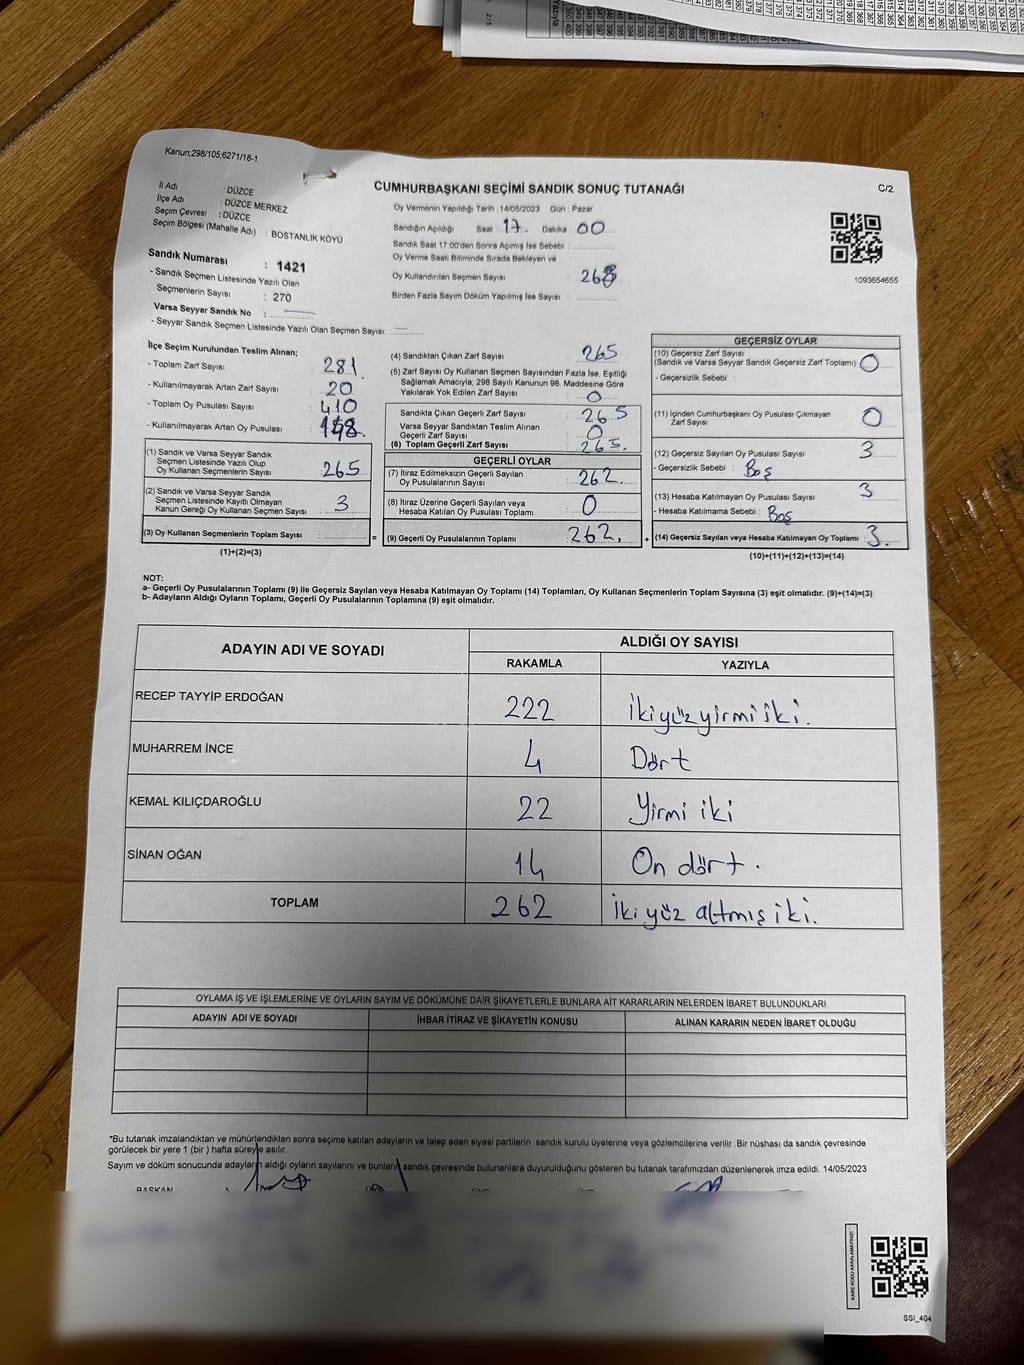 Kanun;298/105;6271/16-1
C/2
CUMHURBAŞKANI SEÇİMİ SANDIK SONUÇ TUTANAĞI
İl Adı : DÜZCE
İlçe Adı : DÜZCE MERKEZ
Seçim Çevresi : DÜZCE
Seçim Bölgesi (Mahalle Adı) : BOSTANLIK KÖYÜ
Sandık Numarası : 1421
- Sandık Seçmen Listesinde Yazılı Olan
Seçmenlerin Sayısı : 270
Varsa Seyyar Sandık No :
- Seyyar Sandık Seçmen Listesinde Yazılı Olan Seçmen Sayısı: —
Oy Vermenin Yapıldığı Tarih : 14/05/2023 Gün : Pazar
Sandığın Açıldığı Saat 17. Dakika : 00
Sandık Saat 17:00'den Sonra Açımış İse Sebebi :
Oy Verme Saati Bitiminde Sırada Bekleyen ve
Oy Kullandırılan Seçmen Sayısı : 268
Birden Fazla Sayım Döküm Yapılmış İse Sayısı :
1093654655
İlçe Seçim Kurulundan Teslim Alınan;
- Toplam Zarf Sayısı : 281
- Kullanılmayarak Artan Zarf Sayısı : 20
- Toplam Oy Pusulası Sayısı : 410
- Kullanılmayarak Artan Oy Pusulası :
(1) Sandık ve Varsa Seyyar Sandık
Seçmen Listesinde Yazılı Olup
Oy Kullanan Seçmenlerin Sayısı : 265
(2) Sandık ve Varsa Seyyar Sandık
Seçmen Listesinde Kayıtlı Olmayan
Kanun Gereği Oy Kullanan Seçmen Sayısı : 3
(3) Oy Kullanan Seçmenlerin Toplam Sayısı :
(1)+(2)=(3)
(4) Sandıktan Çıkan Zarf Sayısı : 265
(5) Zarf Sayısı Oy Kullanan Seçmen Sayısından Fazla İse, Eşitliği
Sağlamak Amacıyla; 298 Sayılı Kanunun 98. Maddesine Göre
Yakılarak Yok Edilen Zarf Sayısı : 0
Sandıkta Çıkan Geçerli Zarf Sayısı : 265
Varsa Seyyar Sandıktan Teslim Alınan
Geçerli Zarf Sayısı : 0
(6) Toplam Geçerli Zarf Sayısı : 265.
GEÇERLİ OYLAR
(7) İtiraz Edilmeksizin Geçerli Sayılan
Oy Pusulalarının Sayısı : 262.
(8) İtiraz Üzerine Geçerli Sayılan veya
Hesaba Katılan Oy Pusulası Toplamı : 0
= (9) Geçerli Oy Pusulalarının Toplamı : 262.
GEÇERSİZ OYLAR
(10) Geçersiz Zarf Sayısı
(Sandık ve Varsa Seyyar Sandık Geçersiz Zarf Toplamı) : 0
- Geçersizlik Sebebi :
(11) İçinden Cumhurbaşkanı Oy Pusulası Çıkmayan
Zarf Sayısı : 0
(12) Geçersiz Sayılan Oy Pusulası Sayısı : 3
- Geçersizlik Sebebi : Boş
(13) Hesaba Katılmayan Oy Pusulası Sayısı : 3
- Hesaba Katılmama Sebebi : Boş
+ (14) Geçersiz Sayılan veya Hesaba Katılmayan Oy Toplamı : 3.
(10)+(11)+(12)+(13)=(14)
NOT:
a- Geçerli Oy Pusulalarının Toplamı (9) ile Geçersiz Sayılan veya Hesaba Katılmayan Oy Toplamı (14) Toplamları, Oy Kullanan Seçmenlerin Toplam Sayısına (3) eşit olmalıdır. (9)+(14)=(3)
b- Adayların Aldığı Oyların Toplamı, Geçerli Oy Pusulalarının Toplamına (9) eşit olmalıdır.
ADAYIN ADI VE SOYADI ALDIĞI OY SAYISI
RAKAMLA YAZIYLA
RECEP TAYYİP ERDOĞAN 222 İkiyüzyirmiiki.
MUHARREM İNCE 4 Dört
KEMAL KILIÇDAROĞLU 22 Yirmi iki
SİNAN OĞAN 14 On dört.
TOPLAM 262 İkiyüz altmış iki.
OYLAMA İŞ VE İŞLEMLERİNE VE OYLARIN SAYIM VE DÖKÜMÜNE DAİR ŞİKAYETLERLE BUNLARA AİT KARARLARIN NELERDEN İBARET BULUNDUKLARI
ADAYIN ADI VE SOYADI İHBAR İTİRAZ VE ŞİKAYETİN KONUSU ALINAN KARARIN NEDEN İBARET OLDUĞU
*Bu tutanak imzalandıktan ve mühürlendikten sonra seçime katılan adayların ve talep eden siyasi partilerin sandık kurulu üyelerine veya gözlemcilerine verilir .Bir nüshası da sandık çevresinde
görülecek bir yere 1 (bir ) hafta süreyle asılır.
Sayım ve döküm sonucunda adayların aldığı oyların sayılarını ve bunların sandık çevresinde bulunanlara duyurulduğunu gösteren bu tutanak tarafımızdan düzenlenerek imza edildi. 14/05/2023
BAŞKAN
KARE KODU KARALAMAYINIZ!
SSI_404